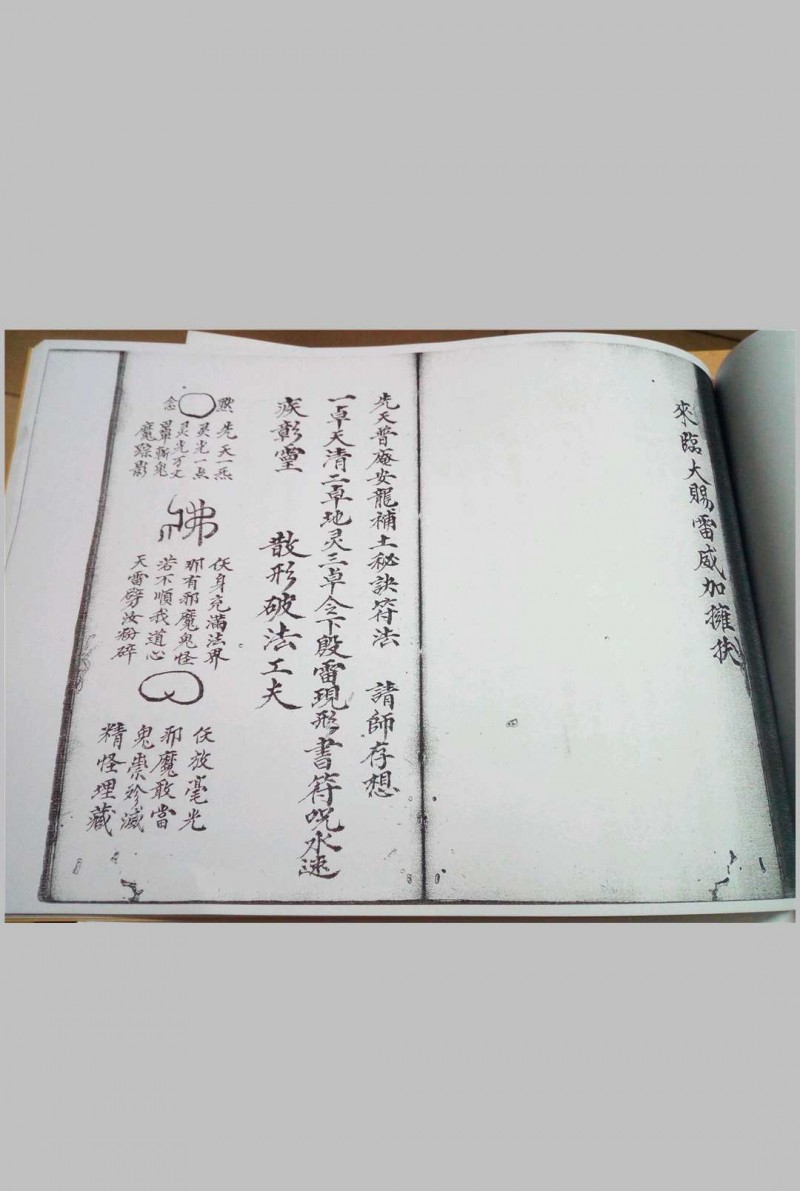 來臨大賜雷威加擁扶
先天普庵安龍補土秘訣符法 請師存想
一卓天清二卓地灵三卓令下殷雷現形書符咒水速
疾彰靈 散形破法工夫
黙念
先天一炁
灵光一点
灵光万丈
斬鬼
魔踪影
佛
仸身充滿法界
那有邪魔鬼怪
若不順我道心
天雷劈汝粉碎
仸放毫光
邪魔敢當
鬼祟殄滅
精怪埋藏